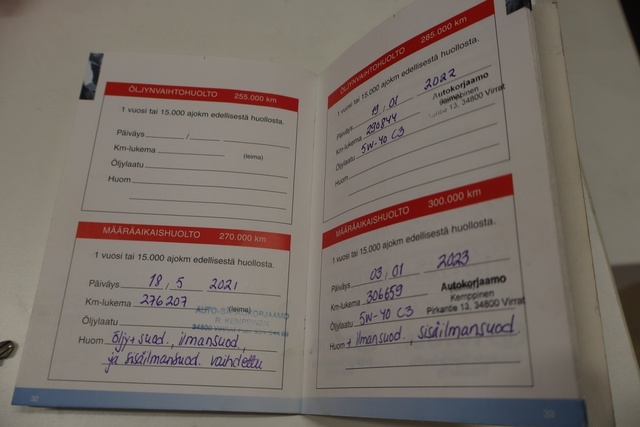 ÖLJYNVAIHTOHUOLTO 255.000 km
1 vuosi tai 15.000 ajokm edellisestä huollosta.
Päiväys / 
Km-lukema
(leima)
Öljylaatu
Huom
MÄÄRÄAIKAISHUOLTO 270.000 km
1 vuosi tai 15.000 ajokm edellisestä huollosta.
Päiväys 18 , 5 2021
Km-lukema 276207
(leima)
Öljylaatu
Huom öljy+suod., ilmansuod,
ja sisäilmansuod. vaihdettu
30
ÖLJYNVAIHTOHUOLTO 285.000 km
1 vuosi tai 15.000 ajokm edellisestä huollosta.
Päiväys 19 , 01 2022
Autokorjaamo
Km-lukema 290844
Kemppinen
13, 34800 Virrat
Öljylaatu 5W-40 C3
Huom
MÄÄRÄAIKAISHUOLTO 300.000 km
1 vuosi tai 15.000 ajokm edellisestä huollosta.
Päiväys 03 , 01 2023
Autokorjaamo
Km-lukema 306659
Kemppinen
Pirkantie 13, 34800 Virrat
Öljylaatu 5W-40 C3
Huom + ilmansuod, sisäilmansuod.